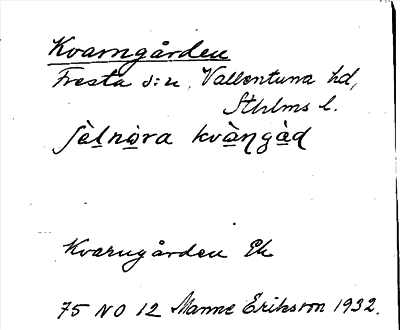 Kvarngården
Fresta s:n, Vallentuna hd,
Sthlms l.
sèlnòra kvàŋgàḍ
Kvarngården Ek
75 NO 12 Manne Eriksson 1932.